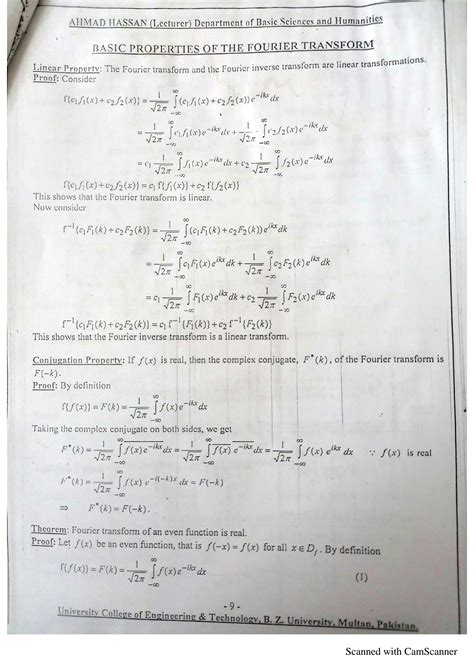 AHMAD HASSAN (Lecturer) Department of Basic Sciences and Humanities
BASIC PROPERTIES OF THE FOURIER TRANSFORM
Linear Property: The Fourier transform and the Fourier inverse transform are linear transformations.
Proof: Consider
f{c₁f₁(x) + c₂f₂(x)} = 1/√2π ∫_{-∞}^{∞} (c₁f₁(x) + c₂f₂(x)) e^{-ikx} dx
= 1/√2π ∫_{-∞}^{∞} c₁f₁(x) e^{-ikx} dx + 1/√2π ∫_{-∞}^{∞} c₂f₂(x) e^{-ikx} dx
= c₁ 1/√2π ∫_{-∞}^{∞} f₁(x) e^{-ikx} dx + c₂ 1/√2π ∫_{-∞}^{∞} f₂(x) e^{-ikx} dx
f{c₁f₁(x) + c₂f₂(x)} = c₁ f{f₁(x)} + c₂ f{f₂(x)}
This shows that the Fourier transform is linear.
Now consider
f⁻¹{c₁F₁(k) + c₂F₂(k)} = 1/√2π ∫_{-∞}^{∞} (c₁F₁(k) + c₂F₂(k)) e^{ikx} dk
= 1/√2π ∫_{-∞}^{∞} c₁F₁(x) e^{ikx} dk + 1/√2π ∫_{-∞}^{∞} c₂F₂(k) e^{ikx} dk
= c₁ 1/√2π ∫_{-∞}^{∞} F₁(x) e^{ikx} dk + c₂ 1/√2π ∫_{-∞}^{∞} F₂(x) e^{ikx} dk
f⁻¹{c₁F₁(k) + c₂F₂(k)} = c₁ f⁻¹{F₁(k)} + c₂ f⁻¹{F₂(k)}
This shows that the Fourier inverse transform is a linear transform.
Conjugation Property: If f(x) is real, then the complex conjugate, F*(k), of the Fourier transform is
F(-k).
Proof: By definition
f{f(x)} = F(k) = 1/√2π ∫_{-∞}^{∞} f(x) e^{-ikx} dx
Taking the complex conjugate on both sides, we get
F*(k) = 1/√2π ∫_{-∞}^{∞} \overline{f(x) e^{-ikx}} dx = 1/√2π ∫_{-∞}^{∞} \overline{f(x)} \overline{e^{-ikx}} dx = 1/√2π ∫_{-∞}^{∞} f(x) e^{ikx} dx ∵ f(x) is real
F*(k) = 1/√2π ∫_{-∞}^{∞} f(x) e^{-i(-k)x} dx = F(-k)
⇒ F*(k) = F(-k)
Theorem: Fourier transform of an even function is real.
Proof: Let f(x) be an even function, that is f(-x) = f(x) for all x ∈ D_f. By definition
f{f(x)} = F(k) = 1/√2π ∫_{-∞}^{∞} f(x) e^{-ikx} dx (1)
- 9 -
University College of Engineering & Technology, B. Z. University, Multan, Pakistan.
Scanned with CamScanner